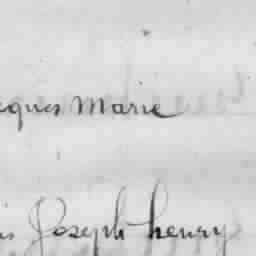 cques Marie
is Joseph henry